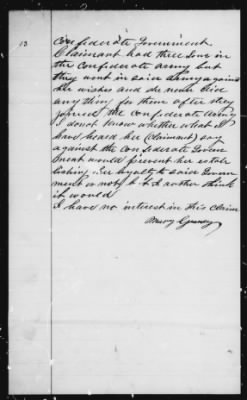 13
Confederate Government
Claimant had three sons in
the Confederate army but
they went in said Army agains
her wishes and she never give
any thing for them after they
joined the Confederate Army
I do not know whether what I
have heard her (Claimant) say
against the Confederate Govern
ment would prevent her estab
lishing her loyalty to said Govern
ment or not, I rather think
it would
I have no interest in this claim